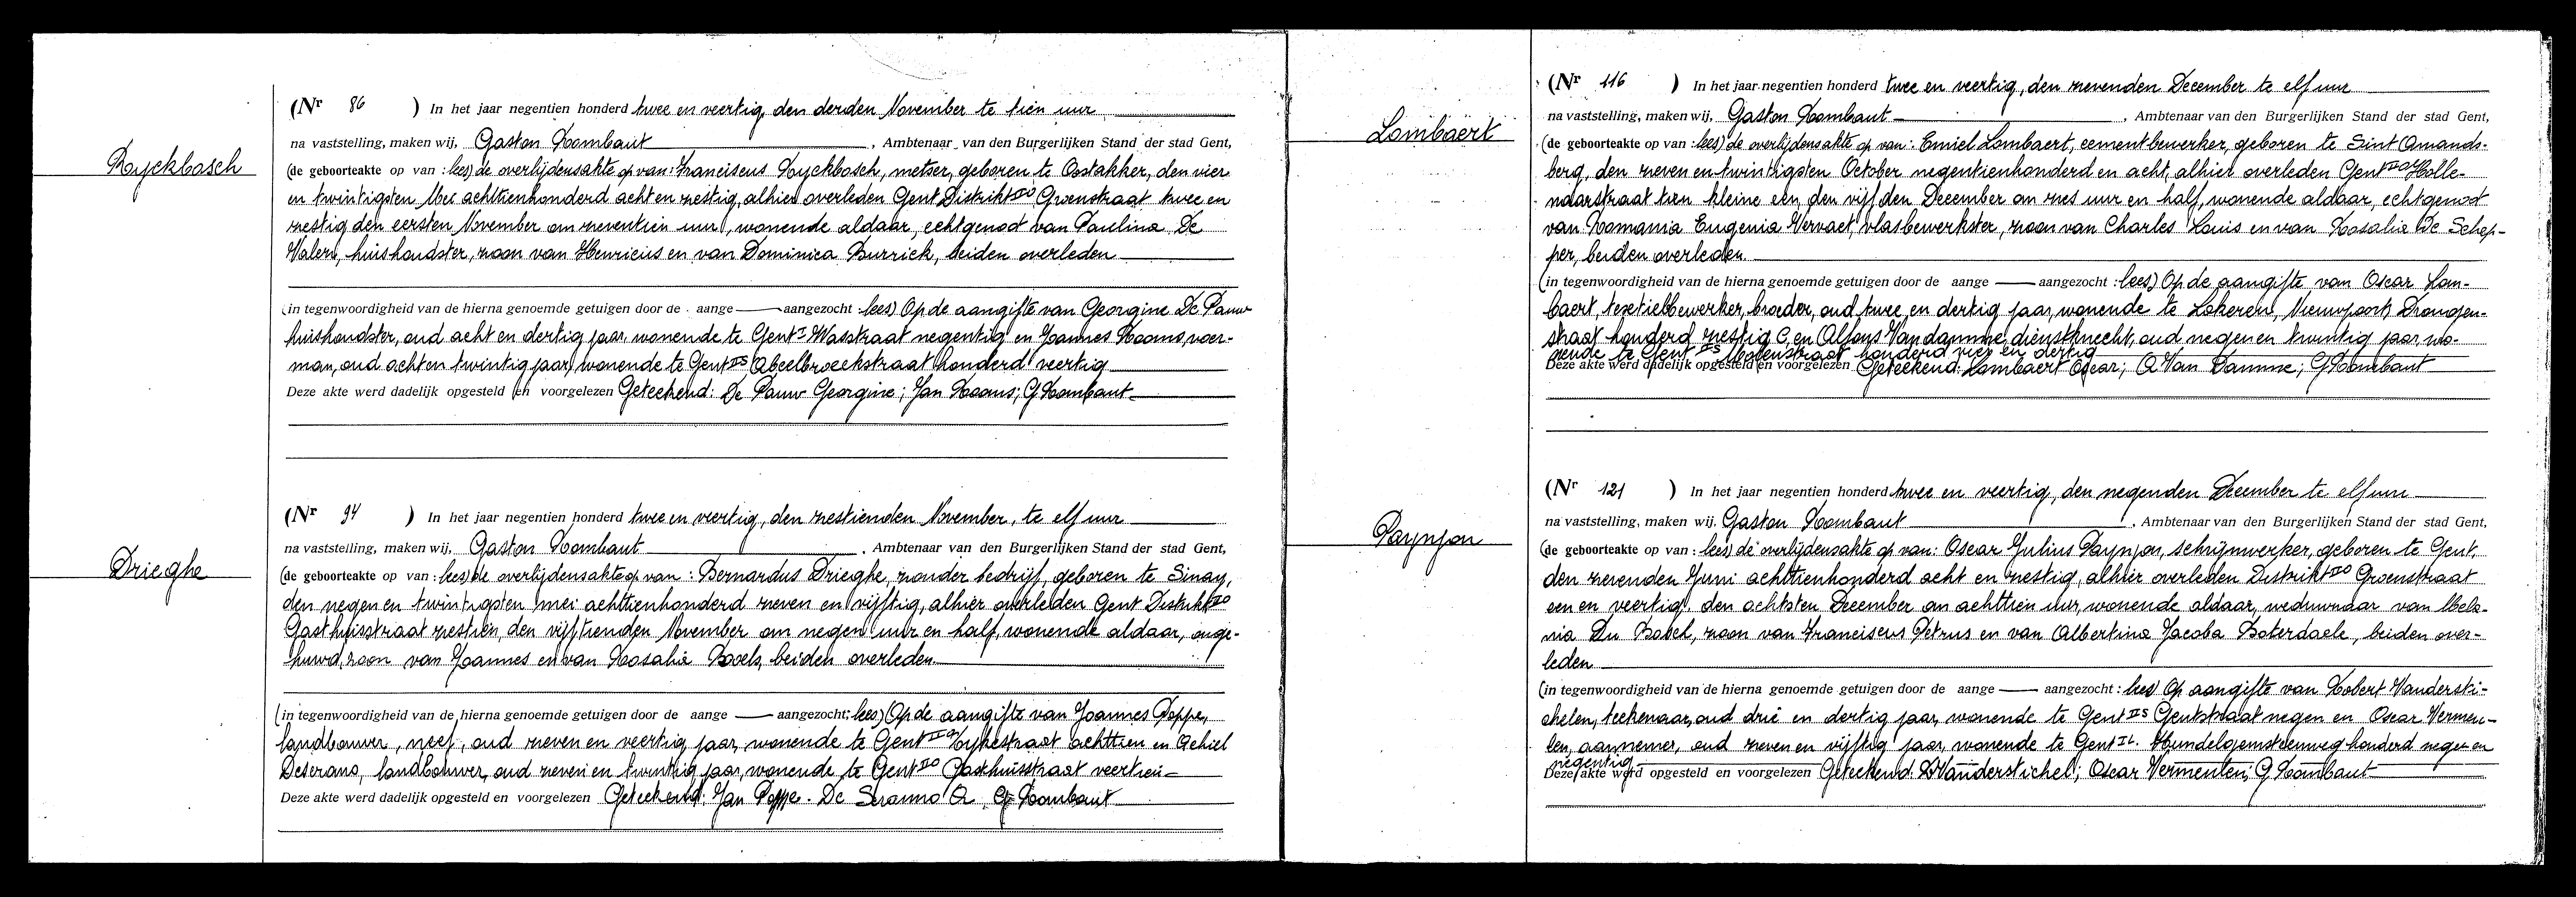 Ryckbosch
(Nr 86 ) In het jaar negentien honderd twee en veertig, den derden November te tien uur
na vaststelling, maken wij, Gaston Rombaut, Ambtenaar van den Burgerlijken Stand der stad Gent,
(de geboorteakte op van : lees) de overlijdensakte op van: Franciscus Ryckbosch, metser, geboren te Oostakker, den vier
en twintigsten Mei achttienhonderd acht en zestig, alhier overleden Gent Distrikt IIO Groenstraat twee en
zestig den eersten November om zeventien uur, wonende aldaar, echtgenoot van Paulina De
Valere, huishoudster, zoon van Henricus en van Dominica Burrick, beiden overleden
(in tegenwoordigheid van de hierna genoemde getuigen door de aange — aangezocht : lees) Op de aangifte van Georgine De Pauw
huishoudster, oud acht en dertig jaar, wonende te Gent I Wasstraat negentig en Joannes Roons, voer-
man, oud acht en twintig jaar, wonende te Gent IIS Abeelbroeckstraat honderd veertig
Deze akte werd dadelijk opgesteld en voorgelezen Geteekend: De Pauw Georgine; Jan Roons; G Rombaut
Drieghe
(Nr 94 ) In het jaar negentien honderd twee en veertig, den zestienden November, te elf uur
na vaststelling, maken wij, Gaston Rombaut, Ambtenaar van den Burgerlijken Stand der stad Gent,
(de geboorteakte op van : lees) de overlijdensakte op van : Bernardus Drieghe, zonder bedrijf, geboren te Sinay,
den negen en twintigsten mei achttienhonderd zeven en vijftig, alhier overleden Gent Distrikt IIO
Gasthuisstraat zestien, den vijftienden November om negen uur en half, wonende aldaar, onge-
huwd, zoon van Joannes en van Rosalie Roels, beiden overleden
(in tegenwoordigheid van de hierna genoemde getuigen door de aange — aangezocht: lees) Op de aangifte van Joannes Poppe,
landbouwer, neef, oud zeven en veertig jaar, wonende te Gent II Eykestraat achttien en Achiel
Deserano, landbouwer, oud zeven en twintig jaar, wonende te Gent IIO Gasthuisstraat veertien
Deze akte werd dadelijk opgesteld en voorgelezen Geteekend: Jan Poppe. De Seranno A. G Rombaut
Lombaert
(Nr 116 ) In het jaar negentien honderd twee en veertig, den zevenden December te elf uur
na vaststelling, maken wij, Gaston Rombaut, Ambtenaar van den Burgerlijken Stand der stad Gent,
(de geboorteakte op van : lees) de overlijdensakte op van: Emiel Lombaert, cementbewerker, geboren te Sint Amands-
berg, den zeven en twintigsten October negentienhonderd en acht, alhier overleden Gent IIO Holle-
ndarstraat tien kleine een, den vijfden December om zes uur en half, wonende aldaar, echtgenoot
van Romania Eugenia Vervaet, vlasbewerkster, zoon van Charles Louis en van Rosalie De Schep-
per, beiden overleden
(in tegenwoordigheid van de hierna genoemde getuigen door de aange — aangezocht : lees) Op de aangifte van Oscar Lom-
baert, textielbewerker, broeder, oud twee en dertig jaar, wonende te Lokeren, Nieuwpoort Drongen-
straat honderd zestig C, en Alfons Van damme, dienstknecht, oud negen en twintig jaar, wo-
nende te Gent IIS Molenstraat honderd vier en dertig
Deze akte werd dadelijk opgesteld en voorgelezen Geteekend: Lombaert Oscar; A Van Damme; G Rombaut
Paynjon
(Nr 121 ) In het jaar negentien honderd twee en veertig, den negenden December te elf uur
na vaststelling, maken wij, Gaston Rombaut, Ambtenaar van den Burgerlijken Stand der stad Gent,
(de geboorteakte op van : lees) de overlijdensakte op van: Oscar Julius Paynjon, schrijnwerker, geboren te Gent,
den zevenden Juni achttienhonderd acht en zestig, alhier overleden Distrikt IIO Groenstraat
een en veertig, den achtsten December om achttien uur, wonende aldaar, weduwnaar van Mela-
nia Du Bosel, zoon van Franciscus Petrus en van Albertina Jacoba Boterdaele, beiden over-
leden
(in tegenwoordigheid van de hierna genoemde getuigen door de aange — aangezocht : lees) Op aangifte van Robert Vandersti-
chelen, teekenaar, oud drie en dertig jaar, wonende te Gent IIS Gentstraat negen en Oscar Vermeu-
len, aannemer, oud zeven en vijftig jaar, wonende te Gent IL. Hundelgemsteenweg honderd negen en
negentig
Deze akte werd opgesteld en voorgelezen Geteekend: R Vanderstichel; Oscar Vermeulen; G Rombaut